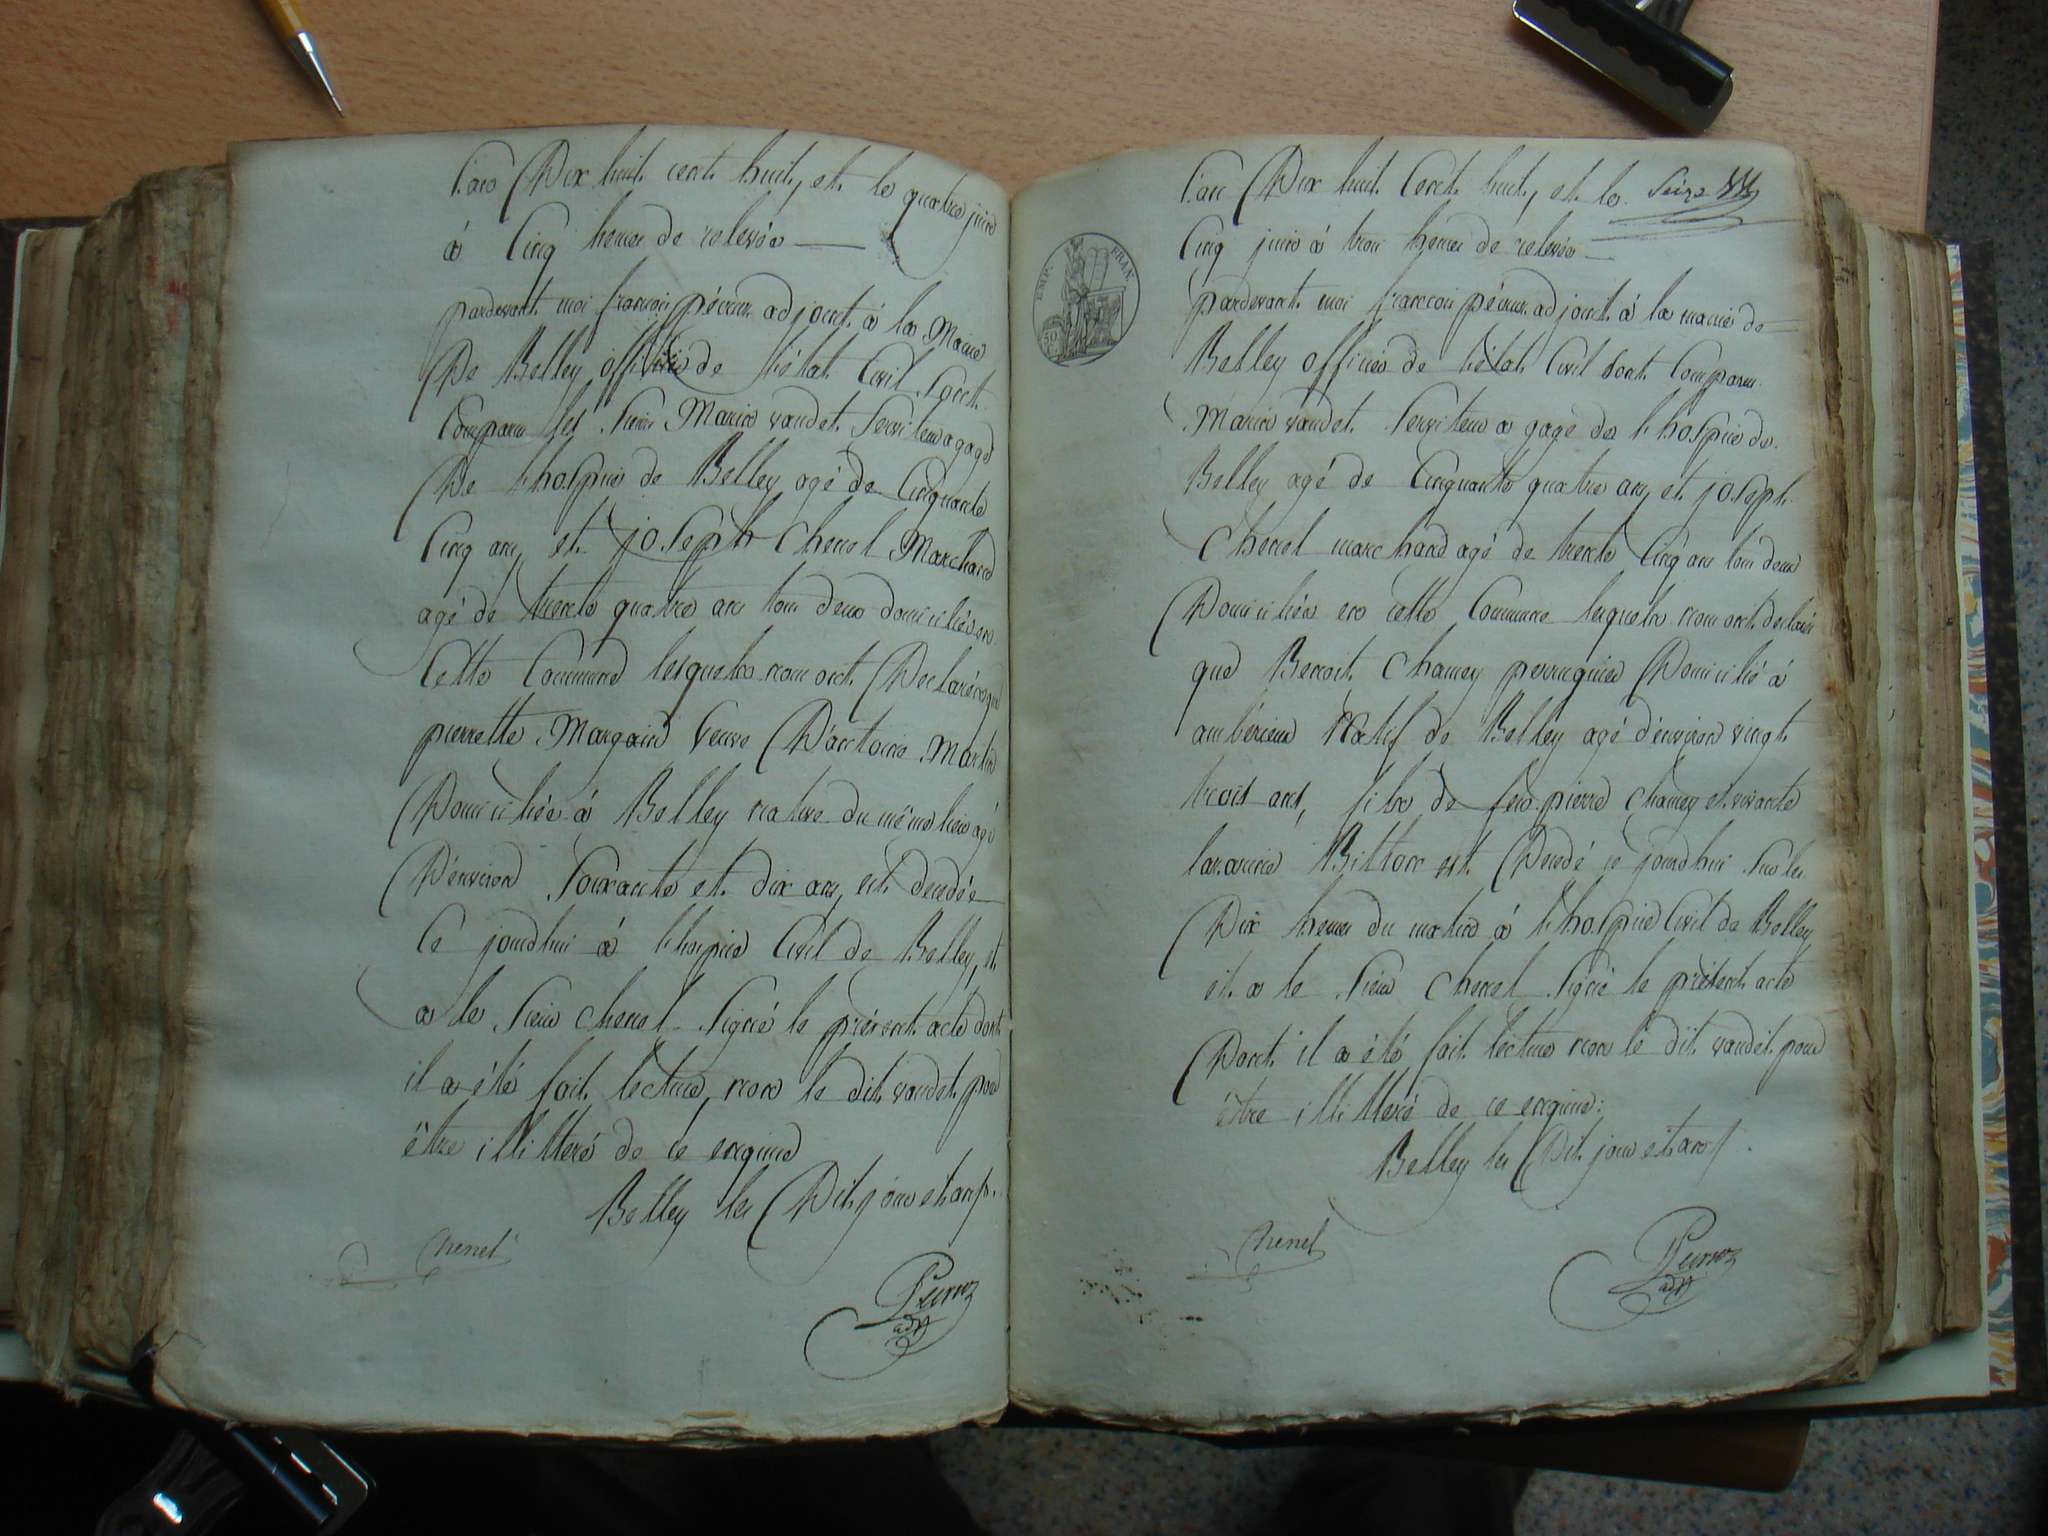 L'an Dix huit cent huit, et le quatre juin
à Cinq heures de relevée
pardevant moi françois adjoint à la Mairie
De Belley officier de l'état Civil Sont
Comparu les Sieurs Marin vaudet Serviteur a gage
De l'hospice de Belley agé de Cinquante
Cinq ans, et joseph Chenel Marchand
agé de trente quatre ans tous deux domiciliés en
Cette Commune lesquels nous ont Declaré que
pierrette Mangain Veuve D'antoine Martin
Domiciliée à Belley native du même lieu agé
D'environ Soixante et dix ans, est decedée
Ce jourdhui à l'hospice Civil de Belley, et
a le Sieur chenel Signé le présent acte dont
il a été fait lecture, non le dit vaudet pour
être illitteré de ce enquis
Belley les Dit jour et an
Chenel
adj
L'an Dix huit Cent huit, et le Seize
Cinq juin à trois heures de relevée
EMP. FRAN.
50
pardevant moi françois adjoint à la mairie de
Belley officier de l'état Civil sont Comparu
Marin vaudet Serviteur a gage de l'hospice de
Belley agé de Cinquante quatre ans, et joseph
Chenel marchand agé de trente Cinq ans tous deux
Domiciliés en cette Commune lesquels nous ont declaré
que Benoit Chamey perruquier Domicilié à
ambérieux Natif de Belley agé d'environ vingt
trois ans, fils de feu pierre Chamey et vivante
Bitton est Decedé ce jourdhui Sur les
Dix heures du matin à l'hospice Civil de Belley
et a le Sieur Chenel Signé le présent acte
Dont il a été fait lecture non le dit vaudet pour
être illitteré de ce enquis:
Belley les Dit jour et an
Chenel
adj